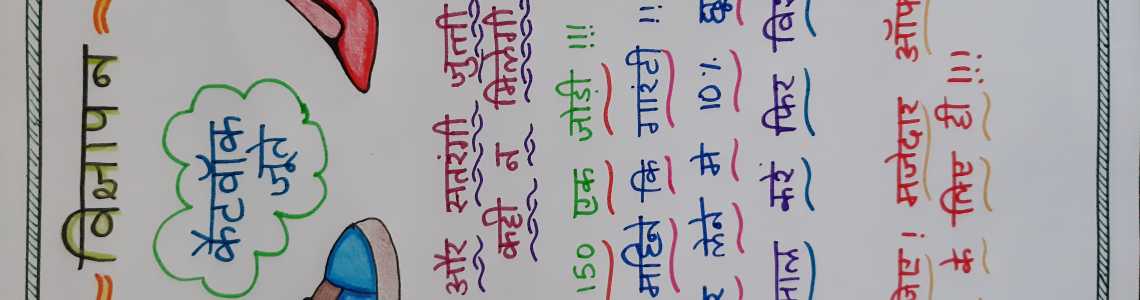 = विज्ञापन =
केटवॉक
जूते
और सतरंगी जुत्ती
कही न मिलेगी
150 एक जोड़ी !!!
महिने कि गारंटी !!
लेने मे 10%
करे फिर
मजेदार
के लिए ही !!!